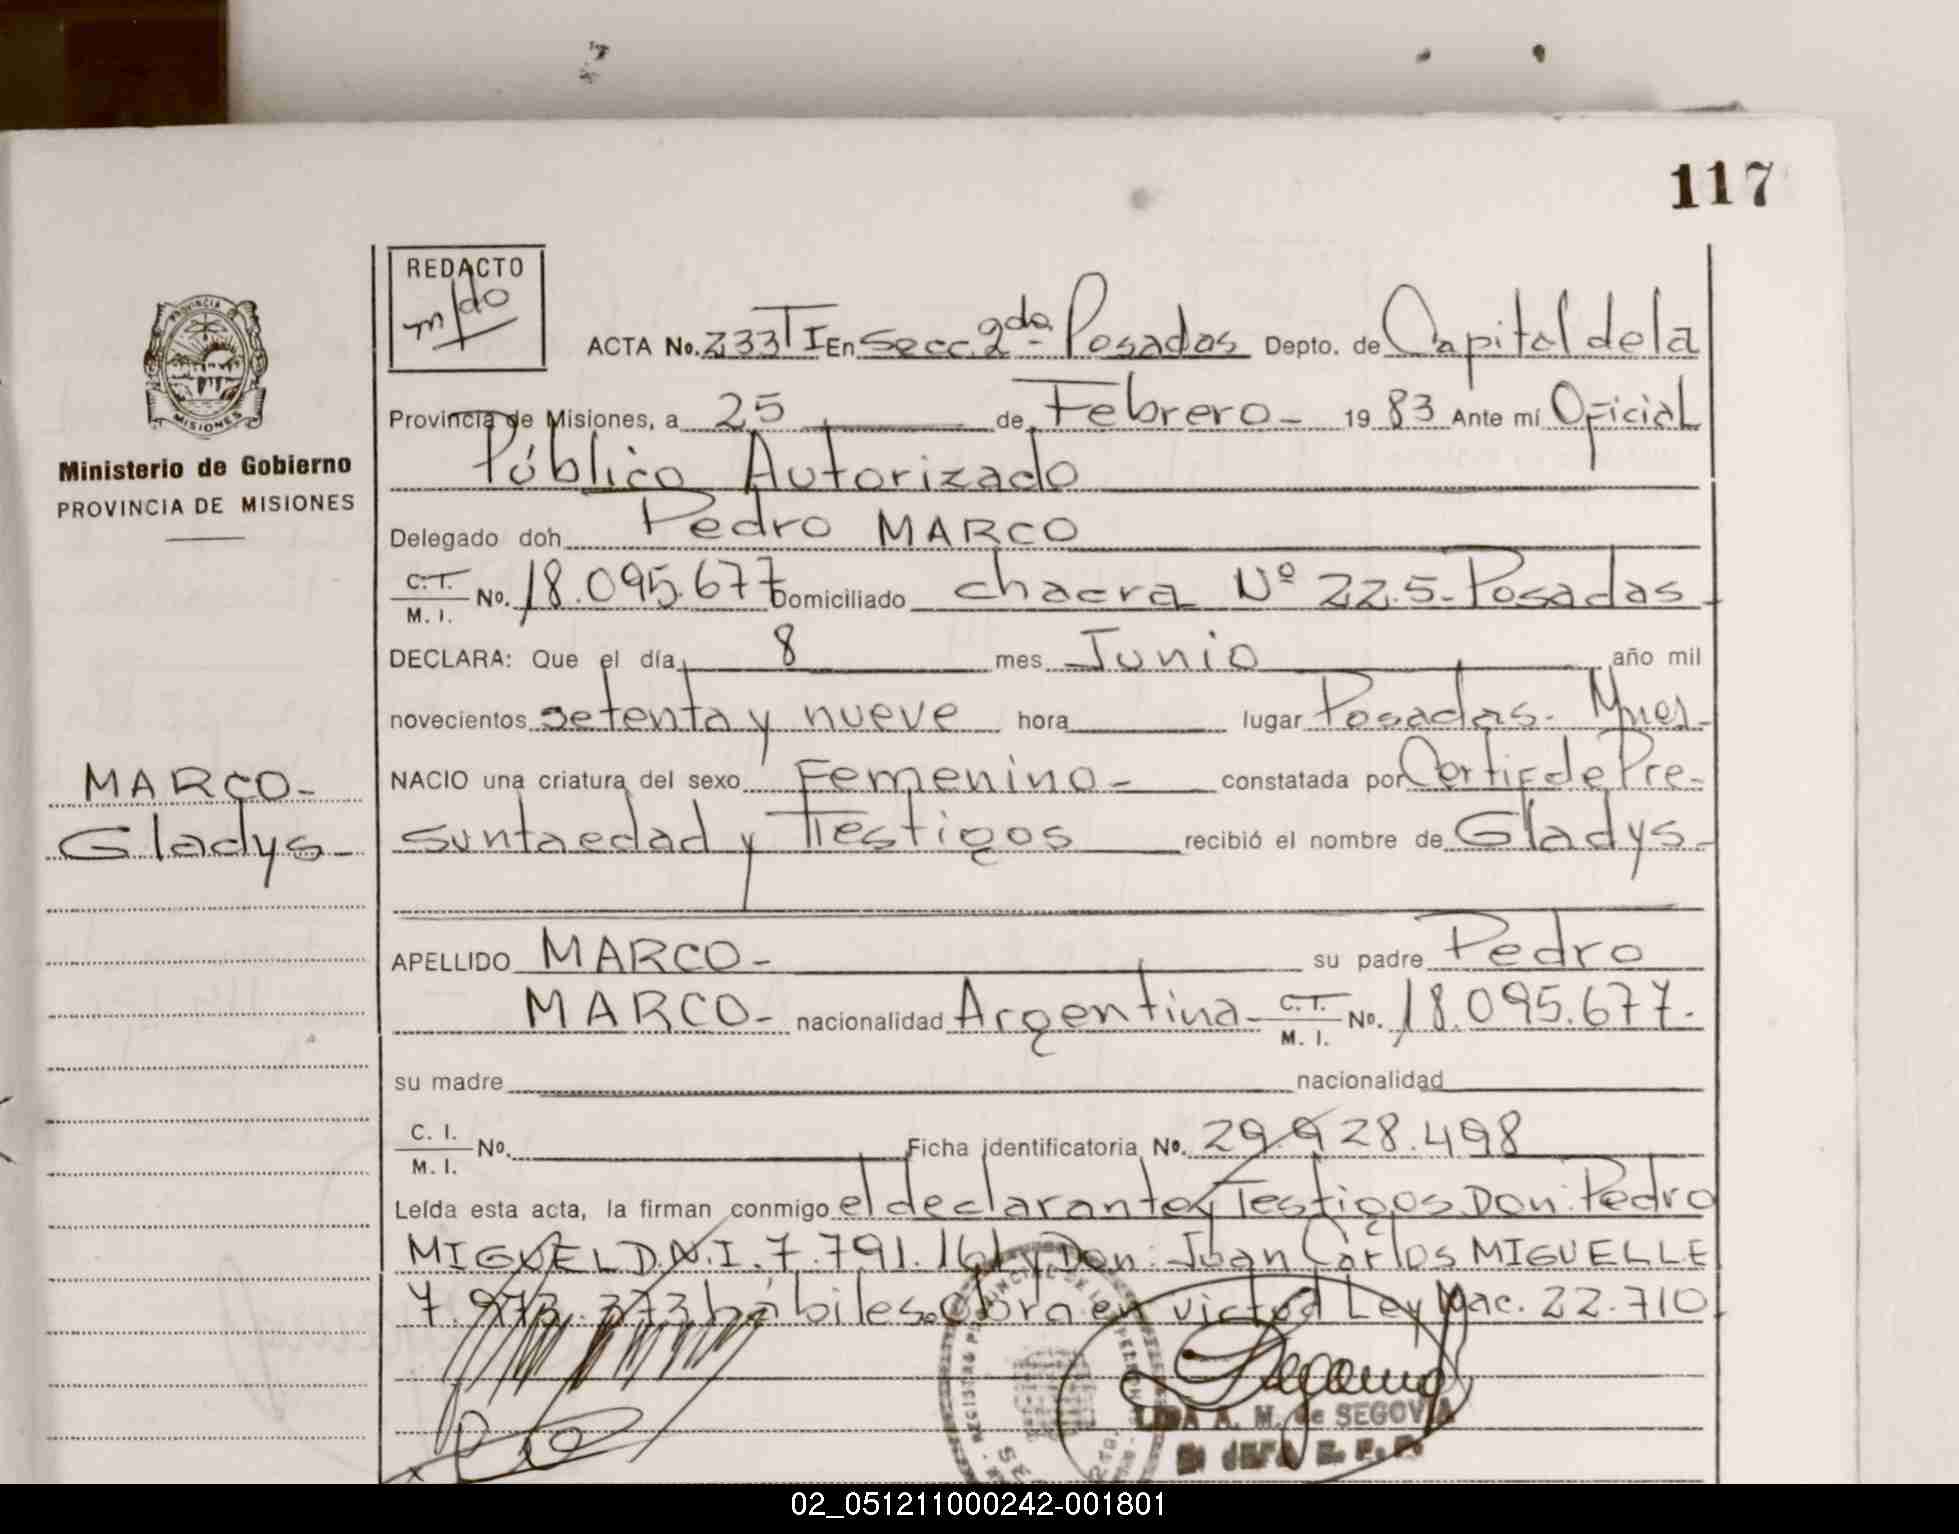 117
REDACTO
m/do
ACTA No. 233 T I En Secc. 2da- Posadas Depto. de Capital de la
Provincia de Misiones, a 25 de Febrero - 1983 Ante mí Oficial
Público Autorizado
Delegado doh Pedro MARCO
C.T. M. I. No. 18.095.677 Domiciliado chacra Nº 225- Posadas
DECLARA: Que el día 8 mes Junio año mil
novecientos setenta y nueve hora lugar Posadas. Mnes-
NACIO una criatura del sexo Femenino - constatada por Certif de Pre-
sunta edad y Testigos recibió el nombre de Gladys-
APELLIDO MARCO- su padre Pedro
MARCO- nacionalidad Argentina- C.T. M. I. No. 18.095.677.
su madre nacionalidad
C. I. M. I. No. Ficha identificatoria No. 29.928.498
Leída esta acta, la firman conmigo el declarante y Testigos Don: Pedro
MIGUEL D.N.I. 7.791.161 y Don: Juan Carlos MIGUELLE
7.973.373 hábiles. Obra en virtud Ley Nac. 22.710
LIDA A. M. de SEGOVIA
PROVINCIA
MISIONES
Ministerio de Gobierno
PROVINCIA DE MISIONES
MARCO-
Gladys-
02_051211000242-001801